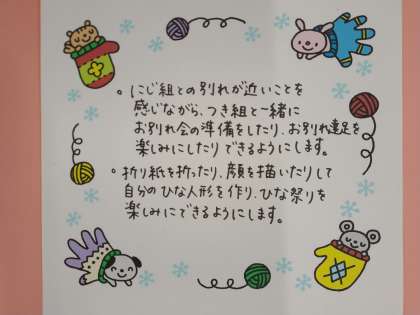 。にじ組との別れが近いことを
感じながら、つき組と一緒に
お別れ会の準備をしたり、お別れ遠足を
楽しみにしたりできるようにします。
。折り紙を折ったり、顔を描いたりして
自分のひな人形を作り、ひな祭りを
楽しみにできるようにします。